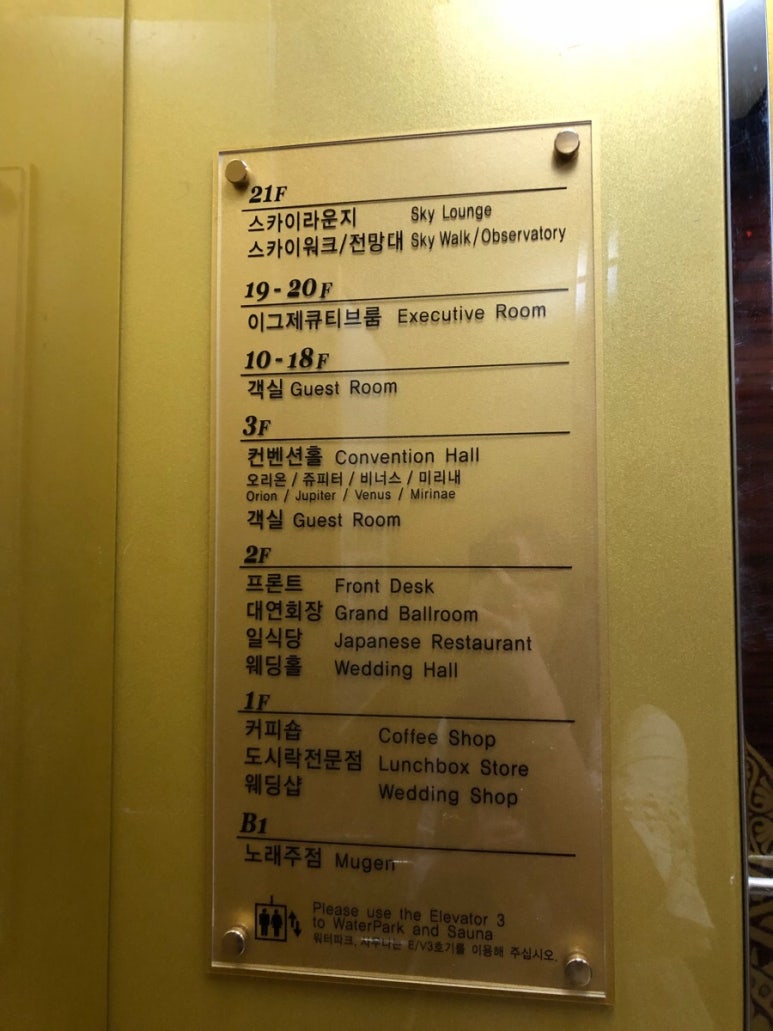 21F
스카이라운지 Sky Lounge
스카이워크/전망대 Sky Walk/Observatory
19-20F
이그제큐티브룸 Executive Room
10-18F
객실 Guest Room
3F
컨벤션홀 Convention Hall
오리온 / 쥬피터 / 비너스 / 미리내
Orion / Jupiter / Venus / Mirinae
객실 Guest Room
2F
프론트 Front Desk
대연회장 Grand Ballroom
일식당 Japanese Restaurant
웨딩홀 Wedding Hall
1F
커피숍 Coffee Shop
도시락전문점 Lunchbox Store
웨딩샵 Wedding Shop
B1
노래주점 Mugen
Please use the Elevator 3
to WaterPark and Sauna
워터파크, 사우나는 E/V3호기를 이용해 주십시오.